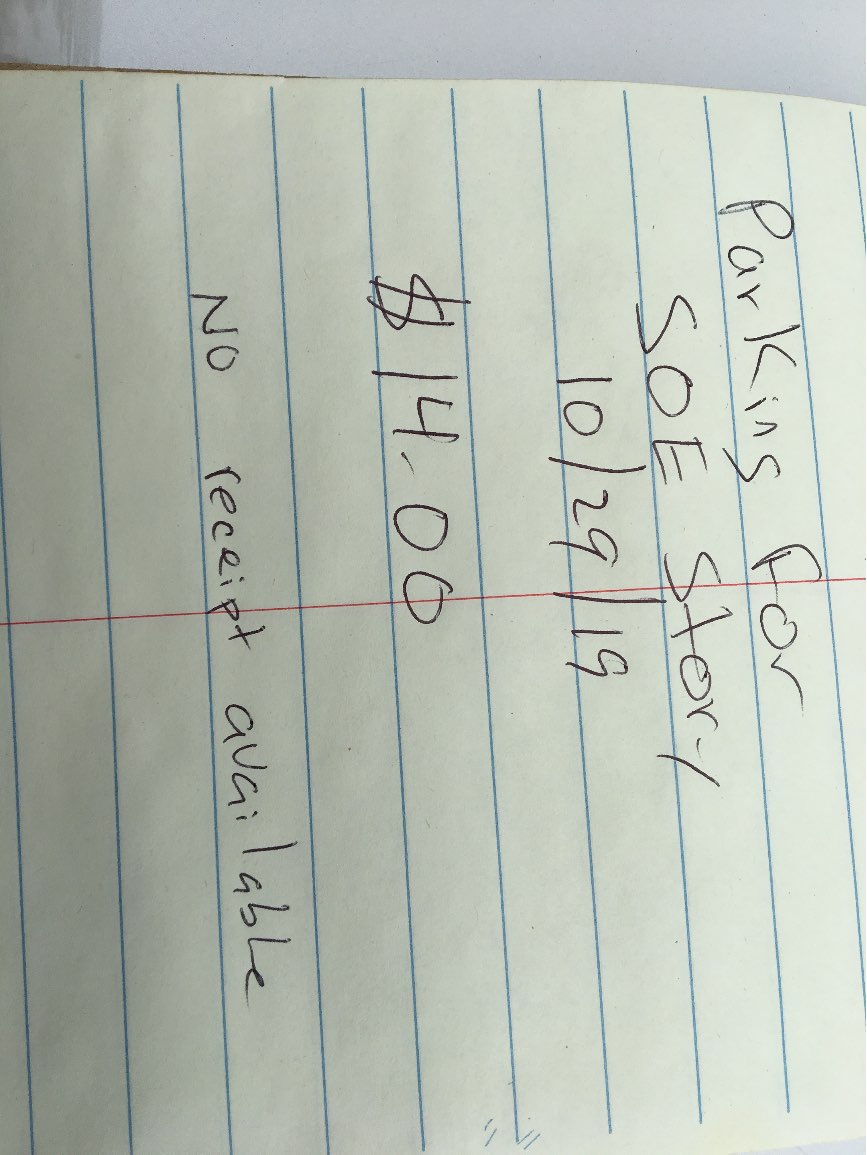 Parking for
SOE Story
10/29/19
$14.00
No receipt available